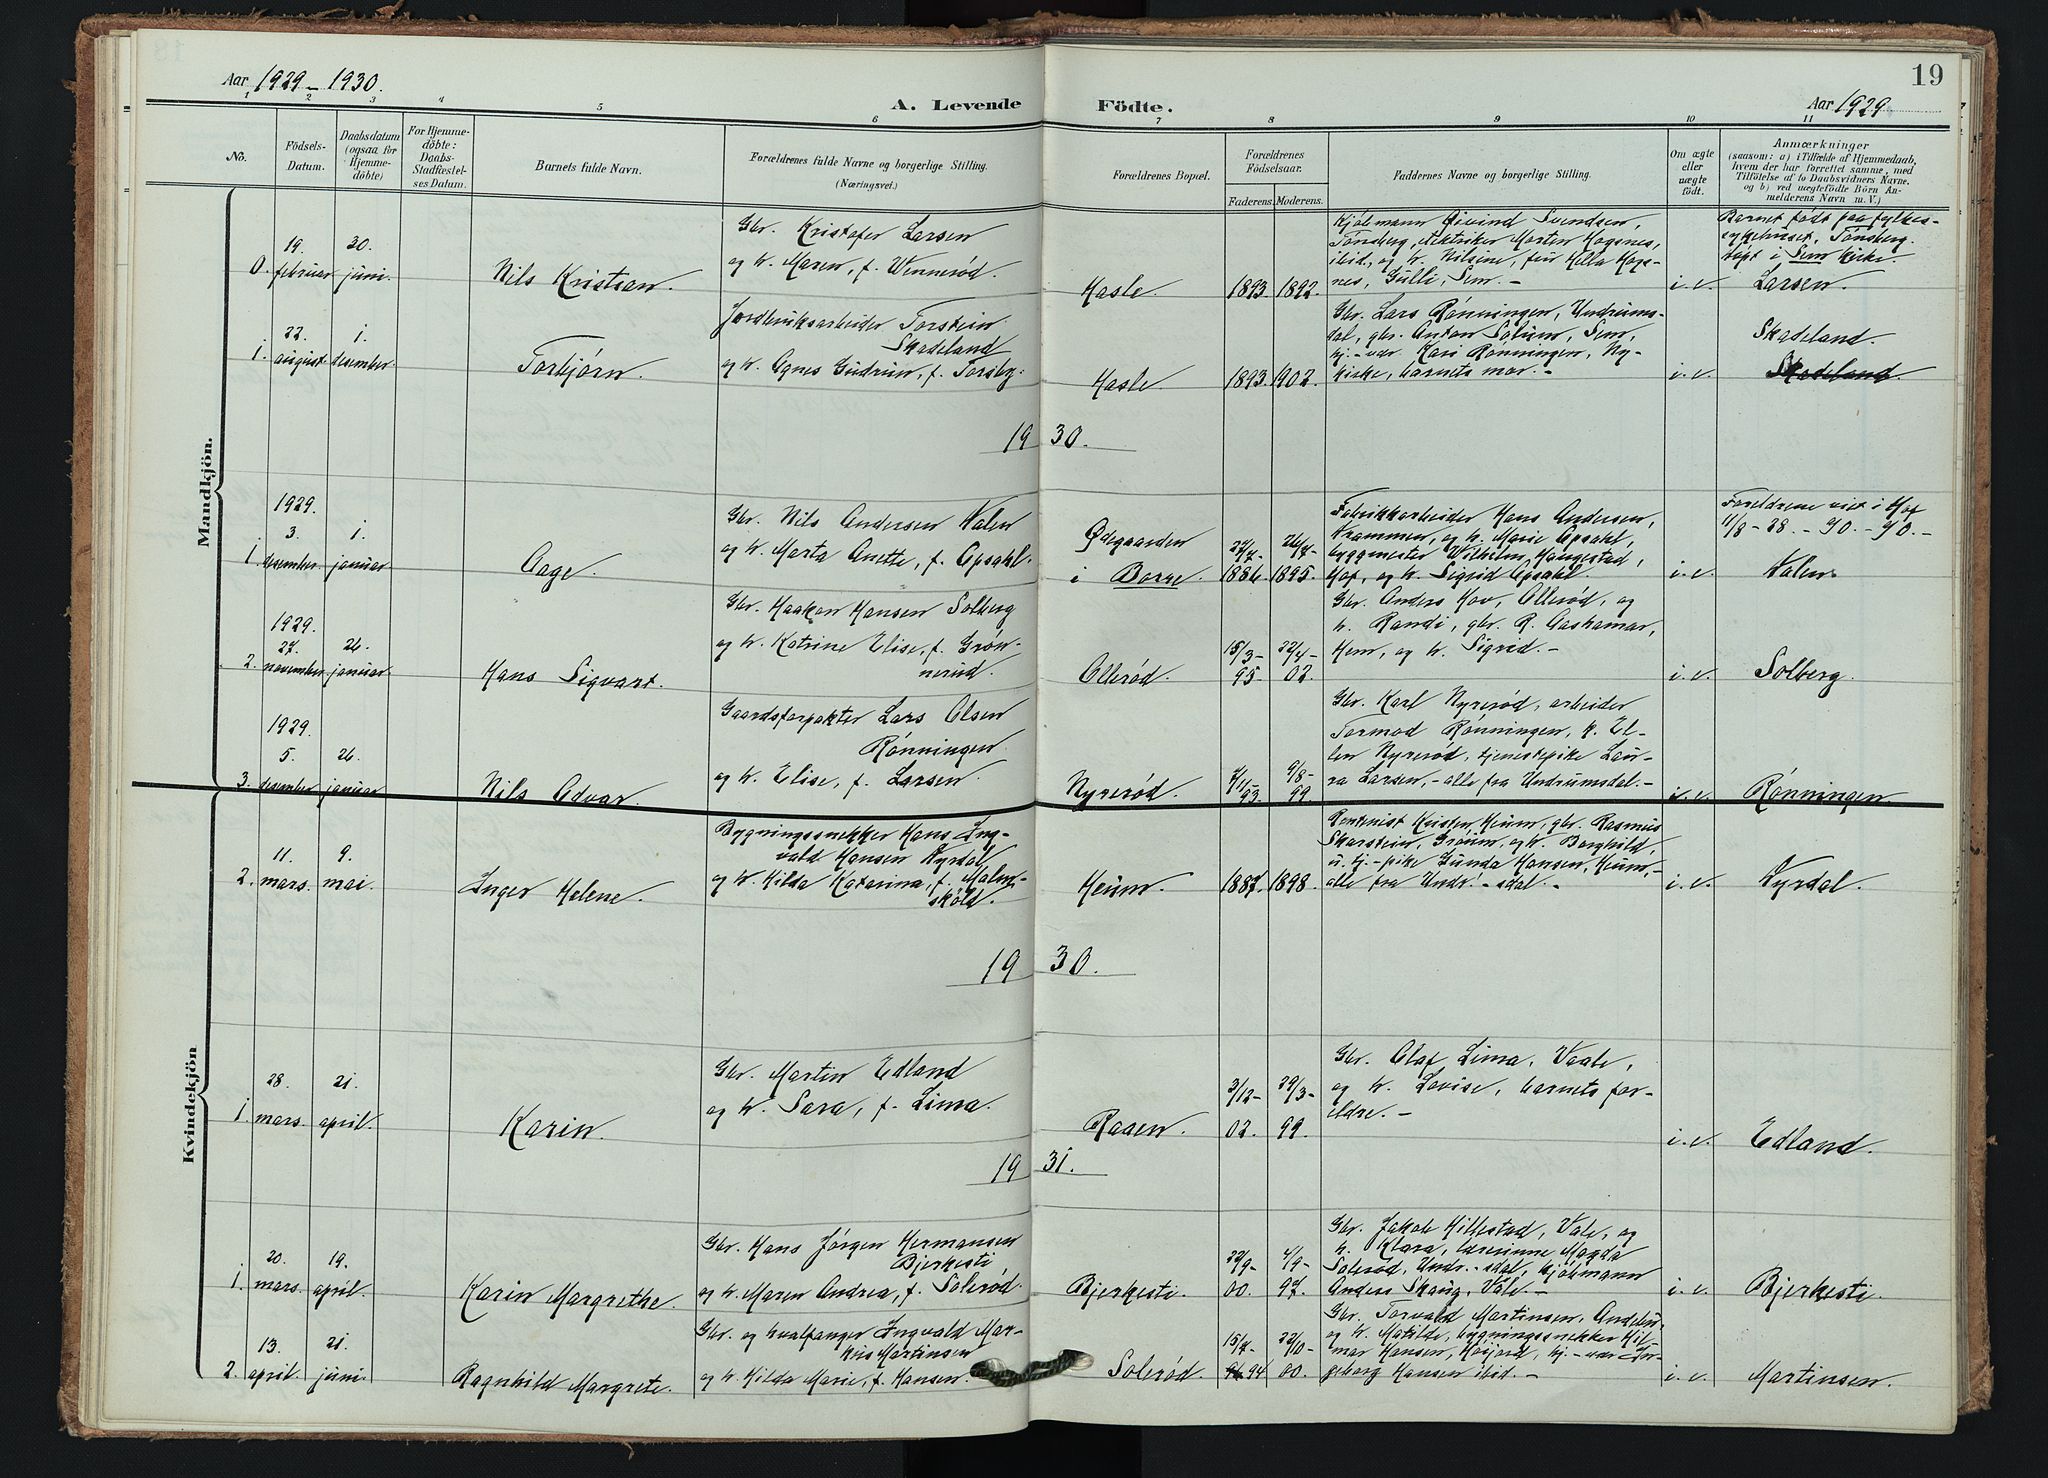 19
Aar 1929 – 1930.
A. Levende Födte.
Aar 1929
1 2 3 4 5 6 7 8 9 10 11
No.
Födsels-
Datum.
Daabsdatum
(ogsaa for
Hjemme-
döbte)
For Hjemme-
döbte:
Daabs-
Stadfæstel-
ses Datum.
Barnets fulde Navn.
Forældrenes fulde Navne og borgerlige Stilling.
(Næringsvei.)
Forældrenes Bopæl.
Forældrenes
Födselsaar.
Faderens. Moderens.
Faddernes Navne og borgerlige Stilling.
Om ægte
eller
uægte
födt.
Anmærkninger
(saasom: a) i Tilfælde af Hjemmedaab,
hvem der har forrettet samme, med
Tilföielse af to Daabsvidners Navne.
og b) ved uægtefödte Börn An-
melderens Navn m. V.)
Mandkjön.
0.
19.
februar
30.
juni.
Nils Kristian.
Gbr. Kristofer Larsen
og h. Maren, f. Wennerød.
Hasle.
1893. 1892.
Kjøbmann Øivind Svendsen,
Tønsberg, elektriker Morten Hogsnes,
ibid, og h. Nilsine, fru Hella Hogs-
nes, Gulli, Sem. –
i. e.
Barnet født paa fylkes-
sykehuset, Tønsberg.
døpt i Sem kirke.
Larsen.
1.
22.
august.
1.
desember.
Torbjørn.
Jordbruksarbeider Torstein
Skadeland
og h. Agnes Gudrun, f. Torsby.
Hasle.
1893. 1902.
Gbr. Lars Rønningen, Undrums-
dal, gbr. Anton Solum, Sem,
hj.-vær. Kari Rønningen, Ny-
kirke, barnets mor. –
i. e.
Skadeland.
Skadeland.
19 30.
1929.
1.
3.
desember.
1.
januar
Aage.
Gbr. Nils Andersen Valen
og h. Marta Anette, f. Opsahl.
Ødegaarden
i Borre.
22/7-
1886.
26/7-
1895.
Fabrikkarbeider Hans Andersen,
Krammen, og h. Marie Opsahl,
byggmester Wilhelm Haugestad,
Hof, og h. Sigrid Opsahl.
i. e.
Foreldrene viet i Hof
11/8 – 28. – 90. – 90. –
Valen.
1929.
2.
27.
november
26.
januar
Hans Sigvart.
Gbr. Haakon Hansen Solberg
og h. Katrine Elise, f. Grøn-
nerud.
Ollerød.
15/3-
95.
22/4-
02.
Gbr. Anders Hov, Ollerød, og
h. Randi, gbr. R. Aashamar,
Hem, og h. Sigrid. –
i. e.
Solberg.
1929.
3.
5.
desember
26.
januar
Nils Edvar.
Gaardsforpakter Lars Olsen
Rønningen
og h. Elise, f. Larsen.
Nyrerød.
93.
9/8-
99.
Gbr. Karl Nyrerød, arbeider
Tormod Rønningen, h. El-
len Nyrerød, tjenestpike Lau-
ra Larsen, – alle fra Undrumsdal. –
i. e.
Rønningen.
Kvindekjön
2.
11.
mars.
9.
mai.
Inger Helene.
Bygningssnekker Hans Ing-
vald Hansen Vyrdal
og h. Hilda Katarina, f. Malm-
skøld.
Heum.
1887. 1898.
Rentenist Kristen Heum, gbr. Rasmus
Skarstein, Grøum, og h. Borghild,
u. hj.-pike Gunda Hansen, Heum, –
alle fra Undr.-sdal. –
i. e.
Vyrdal.
19 30.
1.
28.
mars.
21.
april.
Karin.
Gbr. Martin Edland
og h. Sara, f. Lima.
Raaen.
3/12-
02.
29/3-
99.
Gbr. Olaf Lima, Vaale,
og h. Lovise, barnets for-
eldre. –
i. e.
Edland.
19 31.
1.
20.
mars.
19.
april.
Karin Margrethe.
Gbr. Hans Jørgen Hermansen
Bjerkesti
og h. Maren Andrea, f. Solerød.
Bjerkesti.
22/9-
00.
4/9-
97.
Gbr. Jakob Hillestad, Våle, og
h. Klara, lærerinne Magda
Solerød, Undr.-sdal, kjøbmann
Anders Skaug, Våle. –
i. e.
Bjerkesti.
2.
13.
april.
21.
juni.
Ragnhild Margrete.
Gbr. og hvalfanger Ingvald Mar-
kus Martinsen
og h. Hilda Marie, f. Hansen.
Solerød.
15/7-
94
22/10-
00.
Gbr. Torvald Martinsen, Andebu,
og h. Matilde, bygningssnekker Hil-
mar Hansen, Høijord, hj.-vær In-
geborg Hansen ibid. –
i. e.
Martinsen.